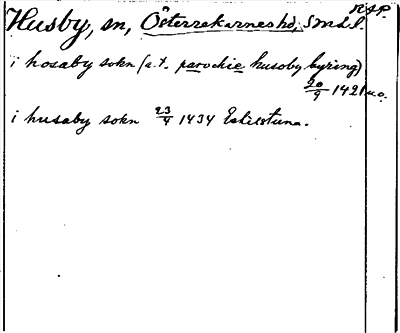 Husby, sn, Österrekarnes hd, Smll. RAP.
i hosaby sokn (a.t. parochie husoby kyring)
20/9 1421 u.o.
i husaby sokn 23/4 1434 Eskilstuna.